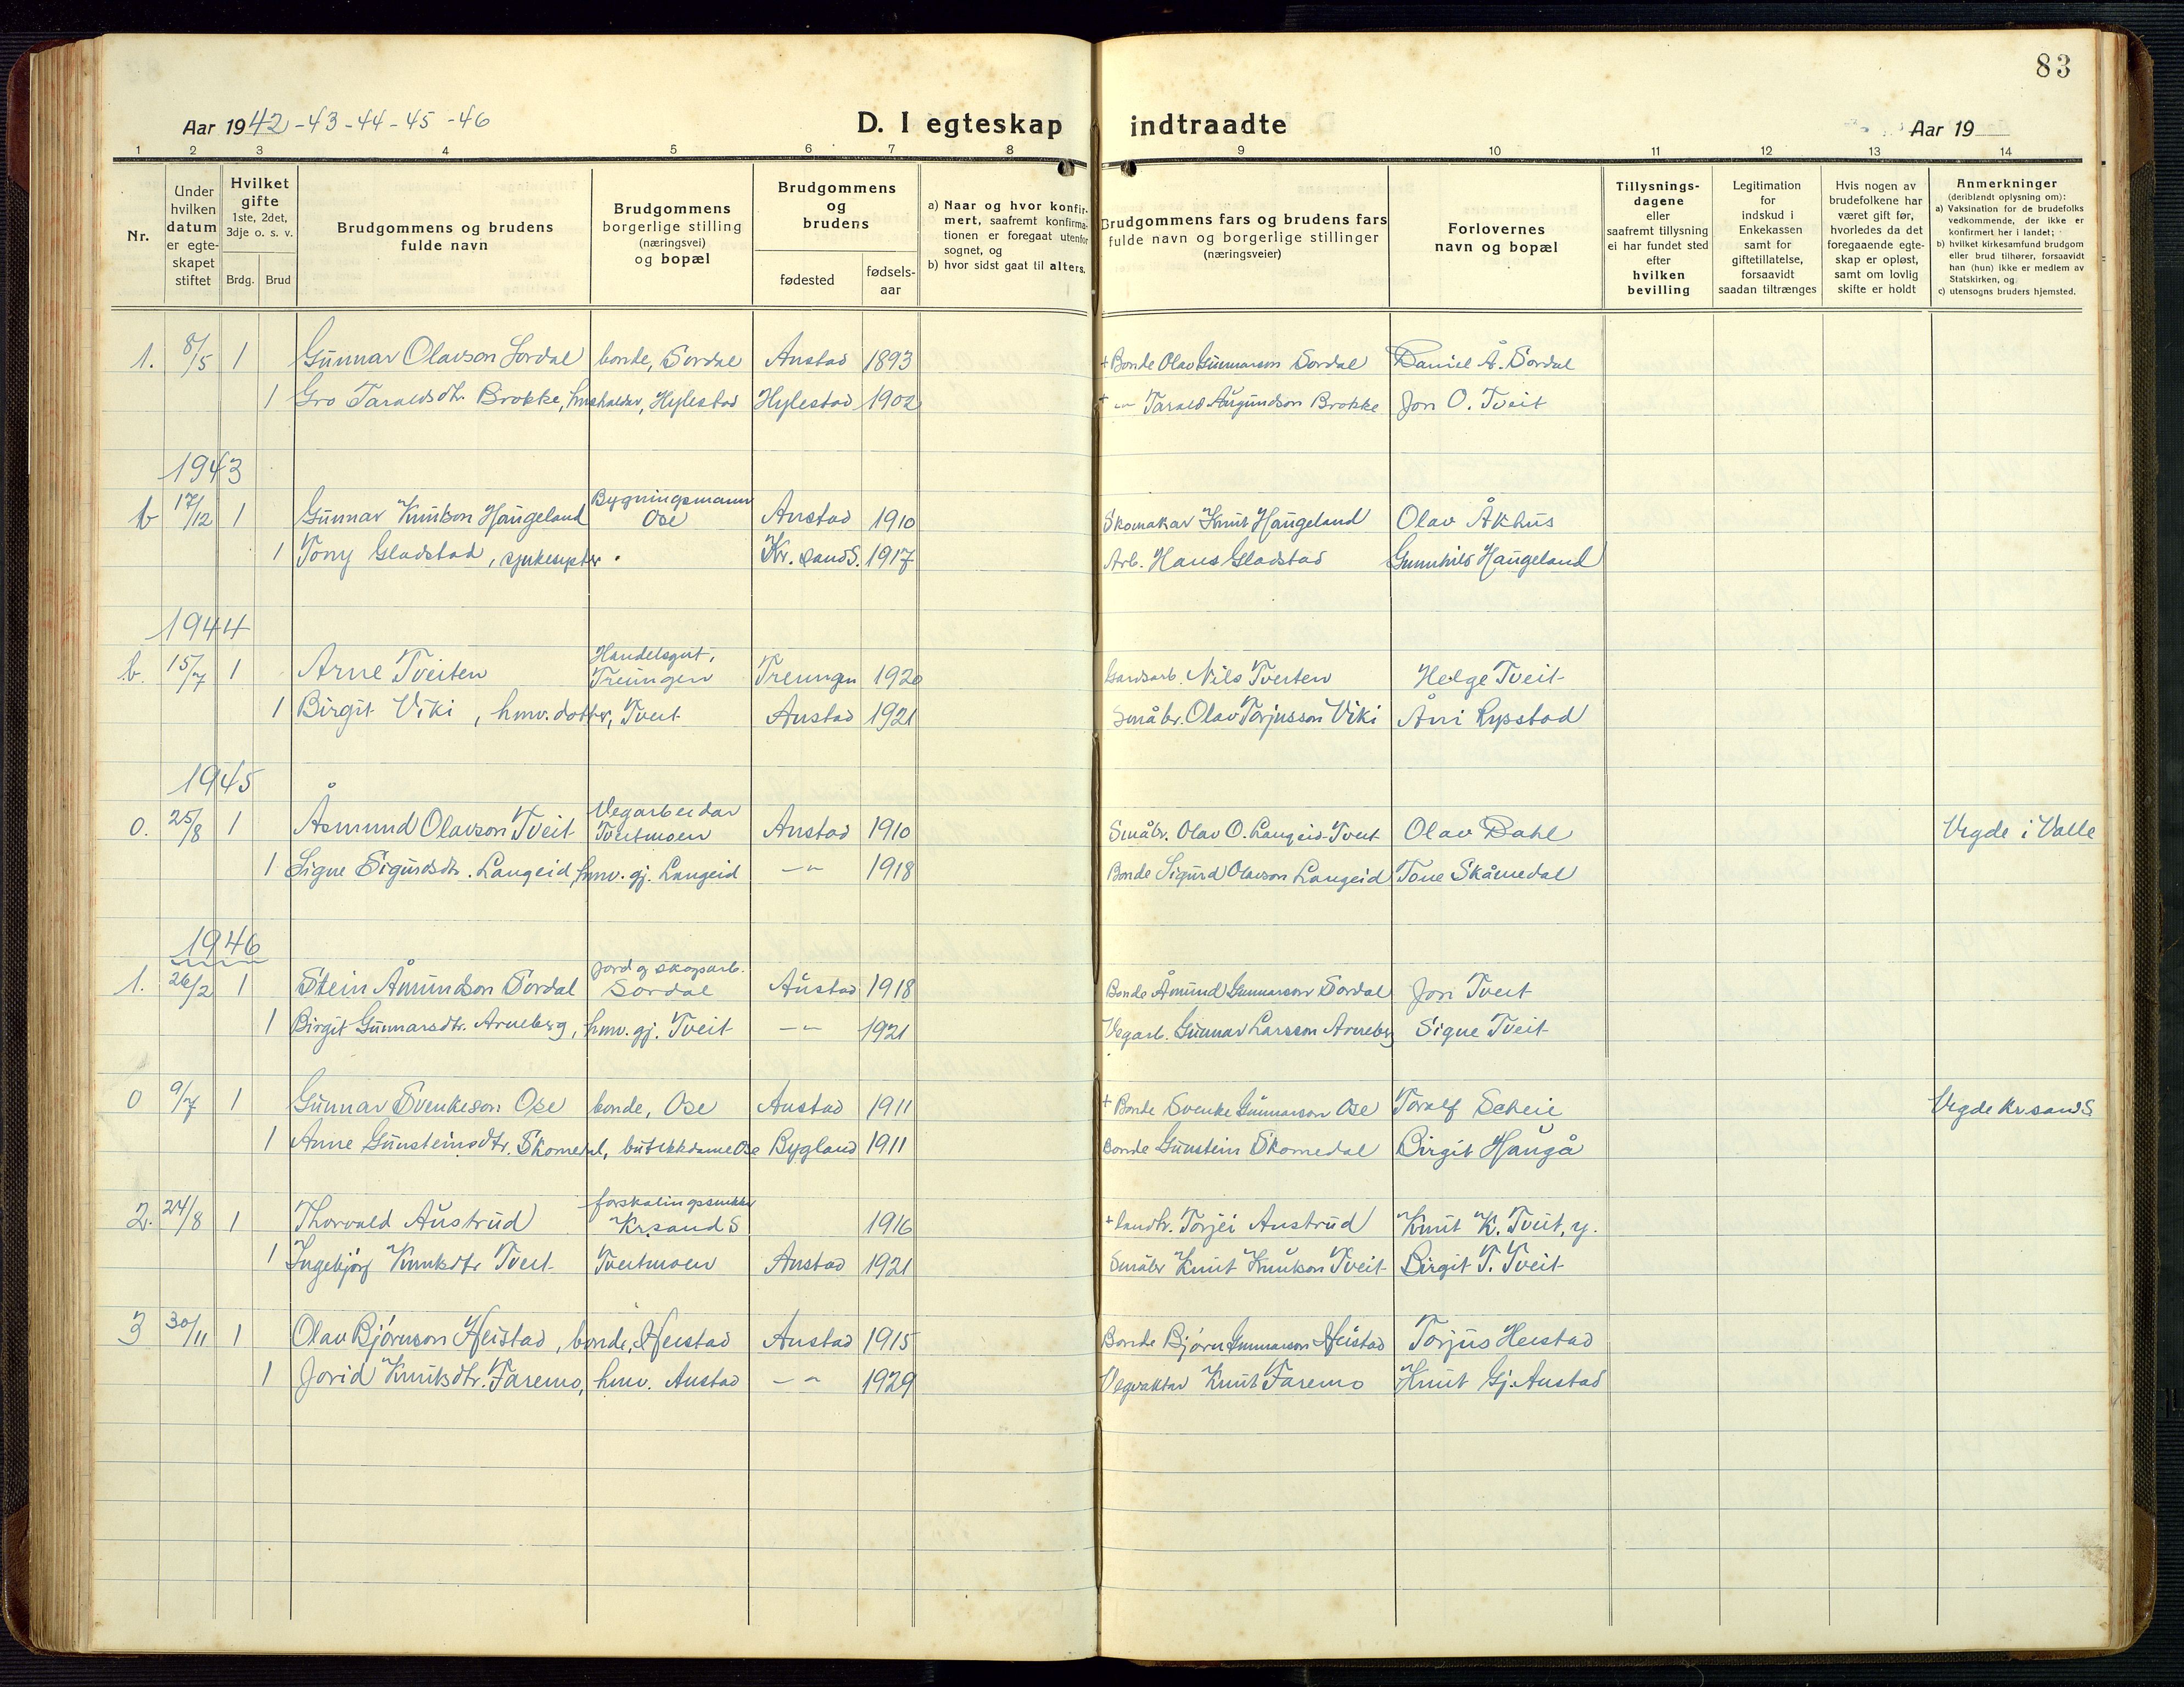 83
Aar 1942-43-44-45-46
D. I egteskap indtraadte
Aar 19
1 2 3 4 5 6 7 8 9 10 11 12 13 14
Nr.
Under hvilken datum er egteskapet stiftet
Hvilket gifte 1ste, 2det, 3dje o. s. v.
Brdg. Brud
Brudgommens og brudens fulde navn
Brudgommens borgerlige stilling (næringsvei) og bopæl
Brudgommens og brudens
fødested
fødsels-aar
a) Naar og hvor konfirmert, saafremt konfirmationen er foregaat utenfor sognet, og
b) hvor sidst gaat til alters.
Brudgommens fars og brudens fars fulde navn og borgerlige stillinger (næringsveier)
Forlovernes navn og bopæl
Tillysningsdagene eller saafremt tillysning ei har fundet sted efter hvilken bevilling
Legitimation for indskud i Enkekassen samt for giftetillatelse, forsaavidt saadan tiltrænges
Hvis nogen av brudefolkene har været gift før, hvorledes da det foregaaende egteskap er opløst, samt om lovlig skifte er holdt
Anmerkninger (deriblandt oplysning om):
a) Vaksination for de brudefolks vedkommende, der ikke er konfirmert her i landet;
b) hvilket kirkesamfund brudgom eller brud tilhører, forsaavidt han (hun) ikke er medlem av Statskirken, og
c) utensogns bruders hjemsted.
1. 8/5 1 Gunnar Olavson Sordal bonde, Sordal Austad 1893 + Bonde Olav Gunnarson Sordal Daniel Å. Sordal
1 Gro Taraldsdtr. Brokke, hushaldar, Hylestad Hylestad 1902 + -"- Tarald Augundson Brokke Jon O. Tveit
1943
b 17/12 1 Gunnar Knutson Haugeland Bygningsmann Ose Austad 1910 Skomakar Knut Haugeland Olav Åkhus
1 Tony Gladstad, sjukesyster Kr.sand S. 1917 Arb. Hans Gladstad Gunnhild Haugeland
1944
b. 15/7 1 Arne Tveiten Handelsgut, Treungen Treungen 1920 Gardsarb. Nils Tveiten Helge Tveit
1 Birgit Viki, hmv. dotter, Tveit Austad 1921 Småbr. Olav Torjusson Viki Åni Rysstad
1945
0. 25/8 1 Åsmund Olavson Tveit Vegarbeidar Tveitmoen Austad 1910 Småbr. Olav O. Langeid-Tveit Olav Dahl Vigde i Valle
1 Signe Sigurdsdtr. Langeid, hmv. gj. Langeid -"- 1918 Bonde Sigurd Olavson Langeid Tone Skåmedal
1946
1. 26/2 1 Stein Åmundson Sordal jord og skogsarb. Sordal Austad 1918 Bonde Åmund Gunnarson Sordal Jon Tveit
1 Birgit Gunnarsdtr. Arneberg, hmv. gj. Tveit -"- 1921 Vegarb. Gunnar Larsson Arneberg Signe Tveit
0 9/7 1 Gunnar Svenkeson Ose bonde, Ose Austad 1911 + Bonde Svenke Gunnarson Ose Toralf Scheie Vigde Kr.sand S
1 Anne Gunsteinsdtr. Skomedal, butikkdame Ose Bygland 1911 Bonde Gunstein Skomedal Birgit Haugå
2. 24/8 1 Thorvald Austrud forskalingssnikkar Kr.sand S 1916 + landbr. Torjei Austrud Knut K. Tveit, y.
1 Ingebjørg Knutsdtr Tveit Tveitmoen Austad 1921 Småbr Knut Knutson Tveit Birgit T. Tveit
3 30/11 1 Olav Bjørnson Heistad, bonde, Heistad Austad 1915 Bonde Bjørn Gunnarson Heistad Torjus Heistad
1 Jorid Knutsdtr. Faremo, hmv. Austad -"- 1929 Vegvaktar Knut Faremo Knut Gj. Austad